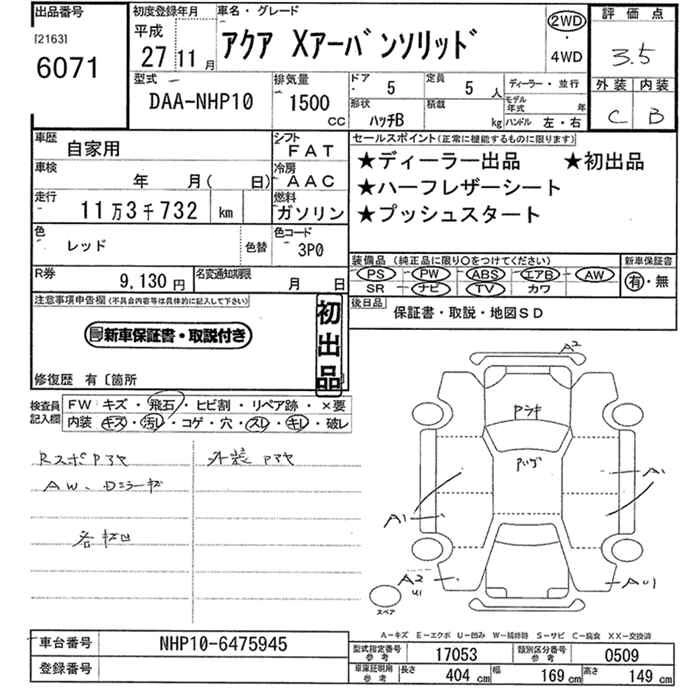 出品番号
[2163]
6071
初度登録年月
平成
27年11月
車名・グレード
アクア Xアーバンソリッド
2WD
・
4WD
評価点
3.5
外装 内装
C B
型式
DAA-NHP10
排気量
1500
CC
ドア
5
定員
5人
ディーラー・並行
形状
ハッチB
積載
kg
モデル年式 年
ハンドル 左・右
車歴
自家用
シフト
FAT
車検
年 月( 日)
冷房
AAC
走行
11万3千732 km
燃料
ガソリン
色
レッド
色替
色コード
3P0
R券
9,130円
名変通知期限
月 日
セールスポイント(正常に機能するものに限ります)
★ディーラー出品 ★初出品
★ハーフレザーシート
★プッシュスタート
装備品 (純正品に限り○をつけてください)
PS PW ABS エアB AW
SR ナビ TV カワ
新車保証書
有・無
後日品
保証書・取説・地図SD
注意事項申告欄(不具合内容等は具体的に記入して下さい)
新車保証書・取説付き
初出品
修復歴 有〔箇所
検査員記入欄
FW キズ・飛石・ヒビ割・リペア跡・×要
内装 キズ・汚レ・コゲ・穴・スレ・キレ・破レ
外装
AW、Dミラーキズ
各キズ凹
A2
A1
A1
A2
U1
AU1
スペア
A-キズ E-エクボ U-凹み W-補修跡 S-サビ C-腐食 XX-交換済
車台番号
NHP10-6475945
登録番号
型式指定番号
参考
17053
類別区分番号
参考
0509
車庫証明用
参考
長さ 404 cm
幅 169 cm
高さ 149 cm